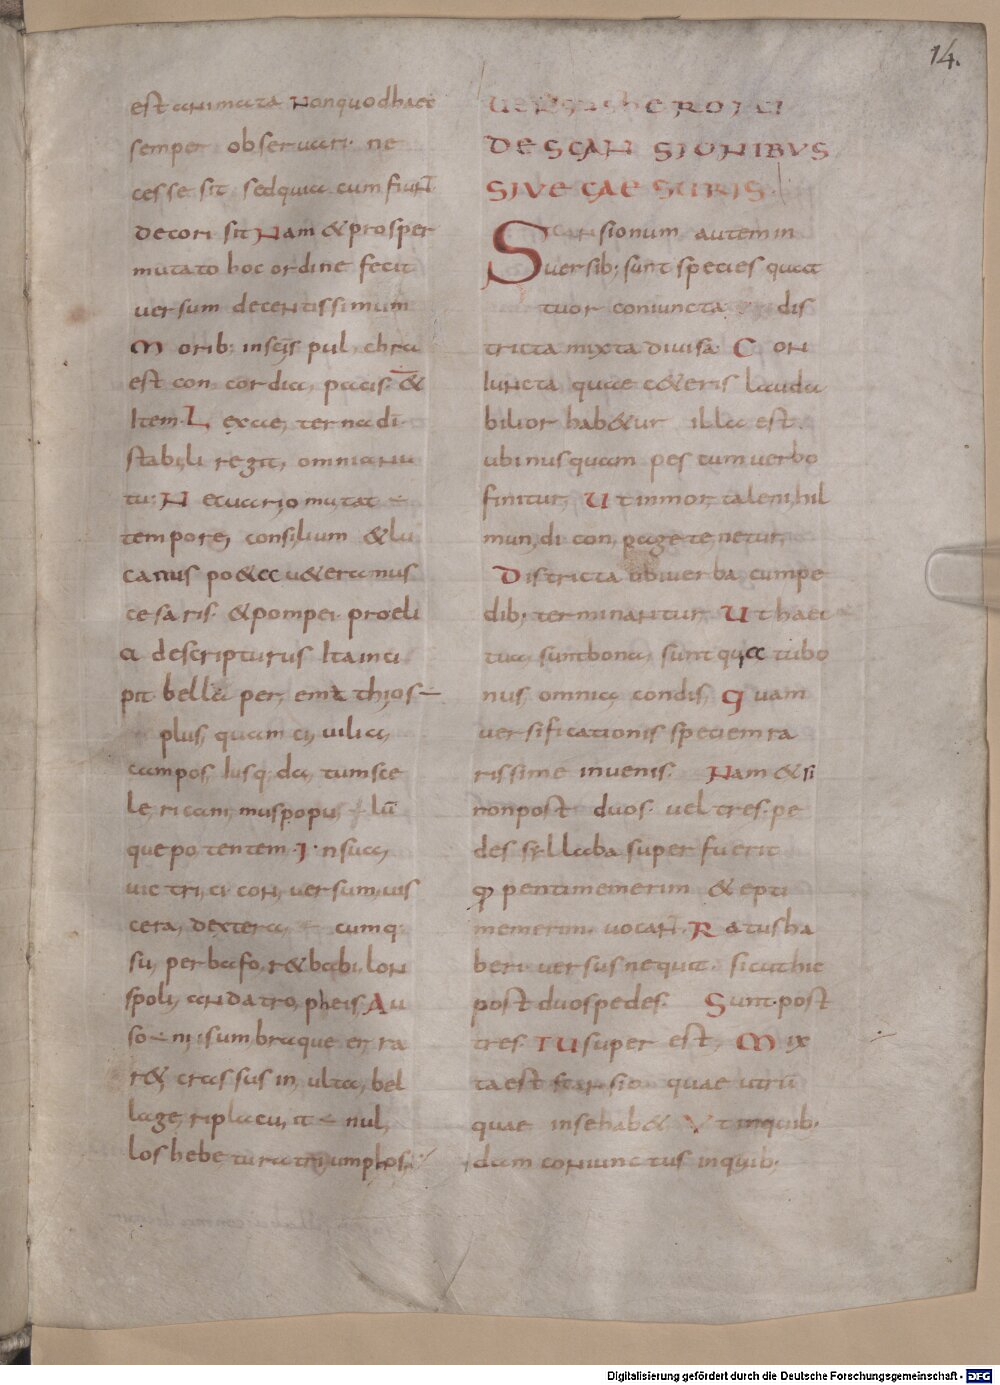 14.
est animata Nonquodhaec
semper observari ne
cesse sit sedquia cum fiuNt̄
decori sit Nam &prosper
mutato hoc ordine fecit
versum decentissimum
Morib; insc̄is pul, chra
est con cordia, pacis. &
Item. L exae, ternadi
stabi,li regit, omniaNu
tu: N ecvario mutat
tempore, consi,lium &lu
canus po&a v&eranus
cesaris. &pompei. proeli
a descripturus Itainci
pit bella per, emat thios
plus, quam ci, vilia,
campos, Iusq; da, tumsce
le, ri cani, muspopu, lū
que po, ten tem. I. n sua,
vic tri, ci coN, versum, vis
cera, dextera, cumq;
su, per bafo, r& babi, loN
spoli, aNda tro, pheis, Au
so ni isum, braque er, ra
r& crassus in, ulta, bel
lage, riplacu, it nul,
los habe turatri,umphos,
hEROICI
DESCANSIONIBVS
SIVE CAESURIS.
Scansionum autemin
versib; sunt species quat
tuor coniuncta dis
tricta mixta divisa CoN
IuNcta quae c&eris lauda
bilior hab&ur illa est.
ubi nusquam pes cum verbo
finitur, Ut inmor, taleni, hil
mun, di con, page te, netur,
Districta ubi verba cumpe
dib; terminaNtur Uthaec
tua, suntbona, sunt qua tubo
nus, omnia, condis, Quam
versificationis speciem ra
rissime invenis. Nam &si
nonpost duos. vel tres. pe
des syllaba super fuerit
q penti memerim & epti
memerim. vocaNt̄. Ratusha
beri versus nequit. sicuthic
post duospedes. Sunt. post
tres. TU super est, Mix
ta est scansio quae utrū
quae insehab& Vt inquib.
dam coNiunctus inquib;
Digitalisierung gefördert durch die Deutsche Forschungsgemeinschaft - DFG